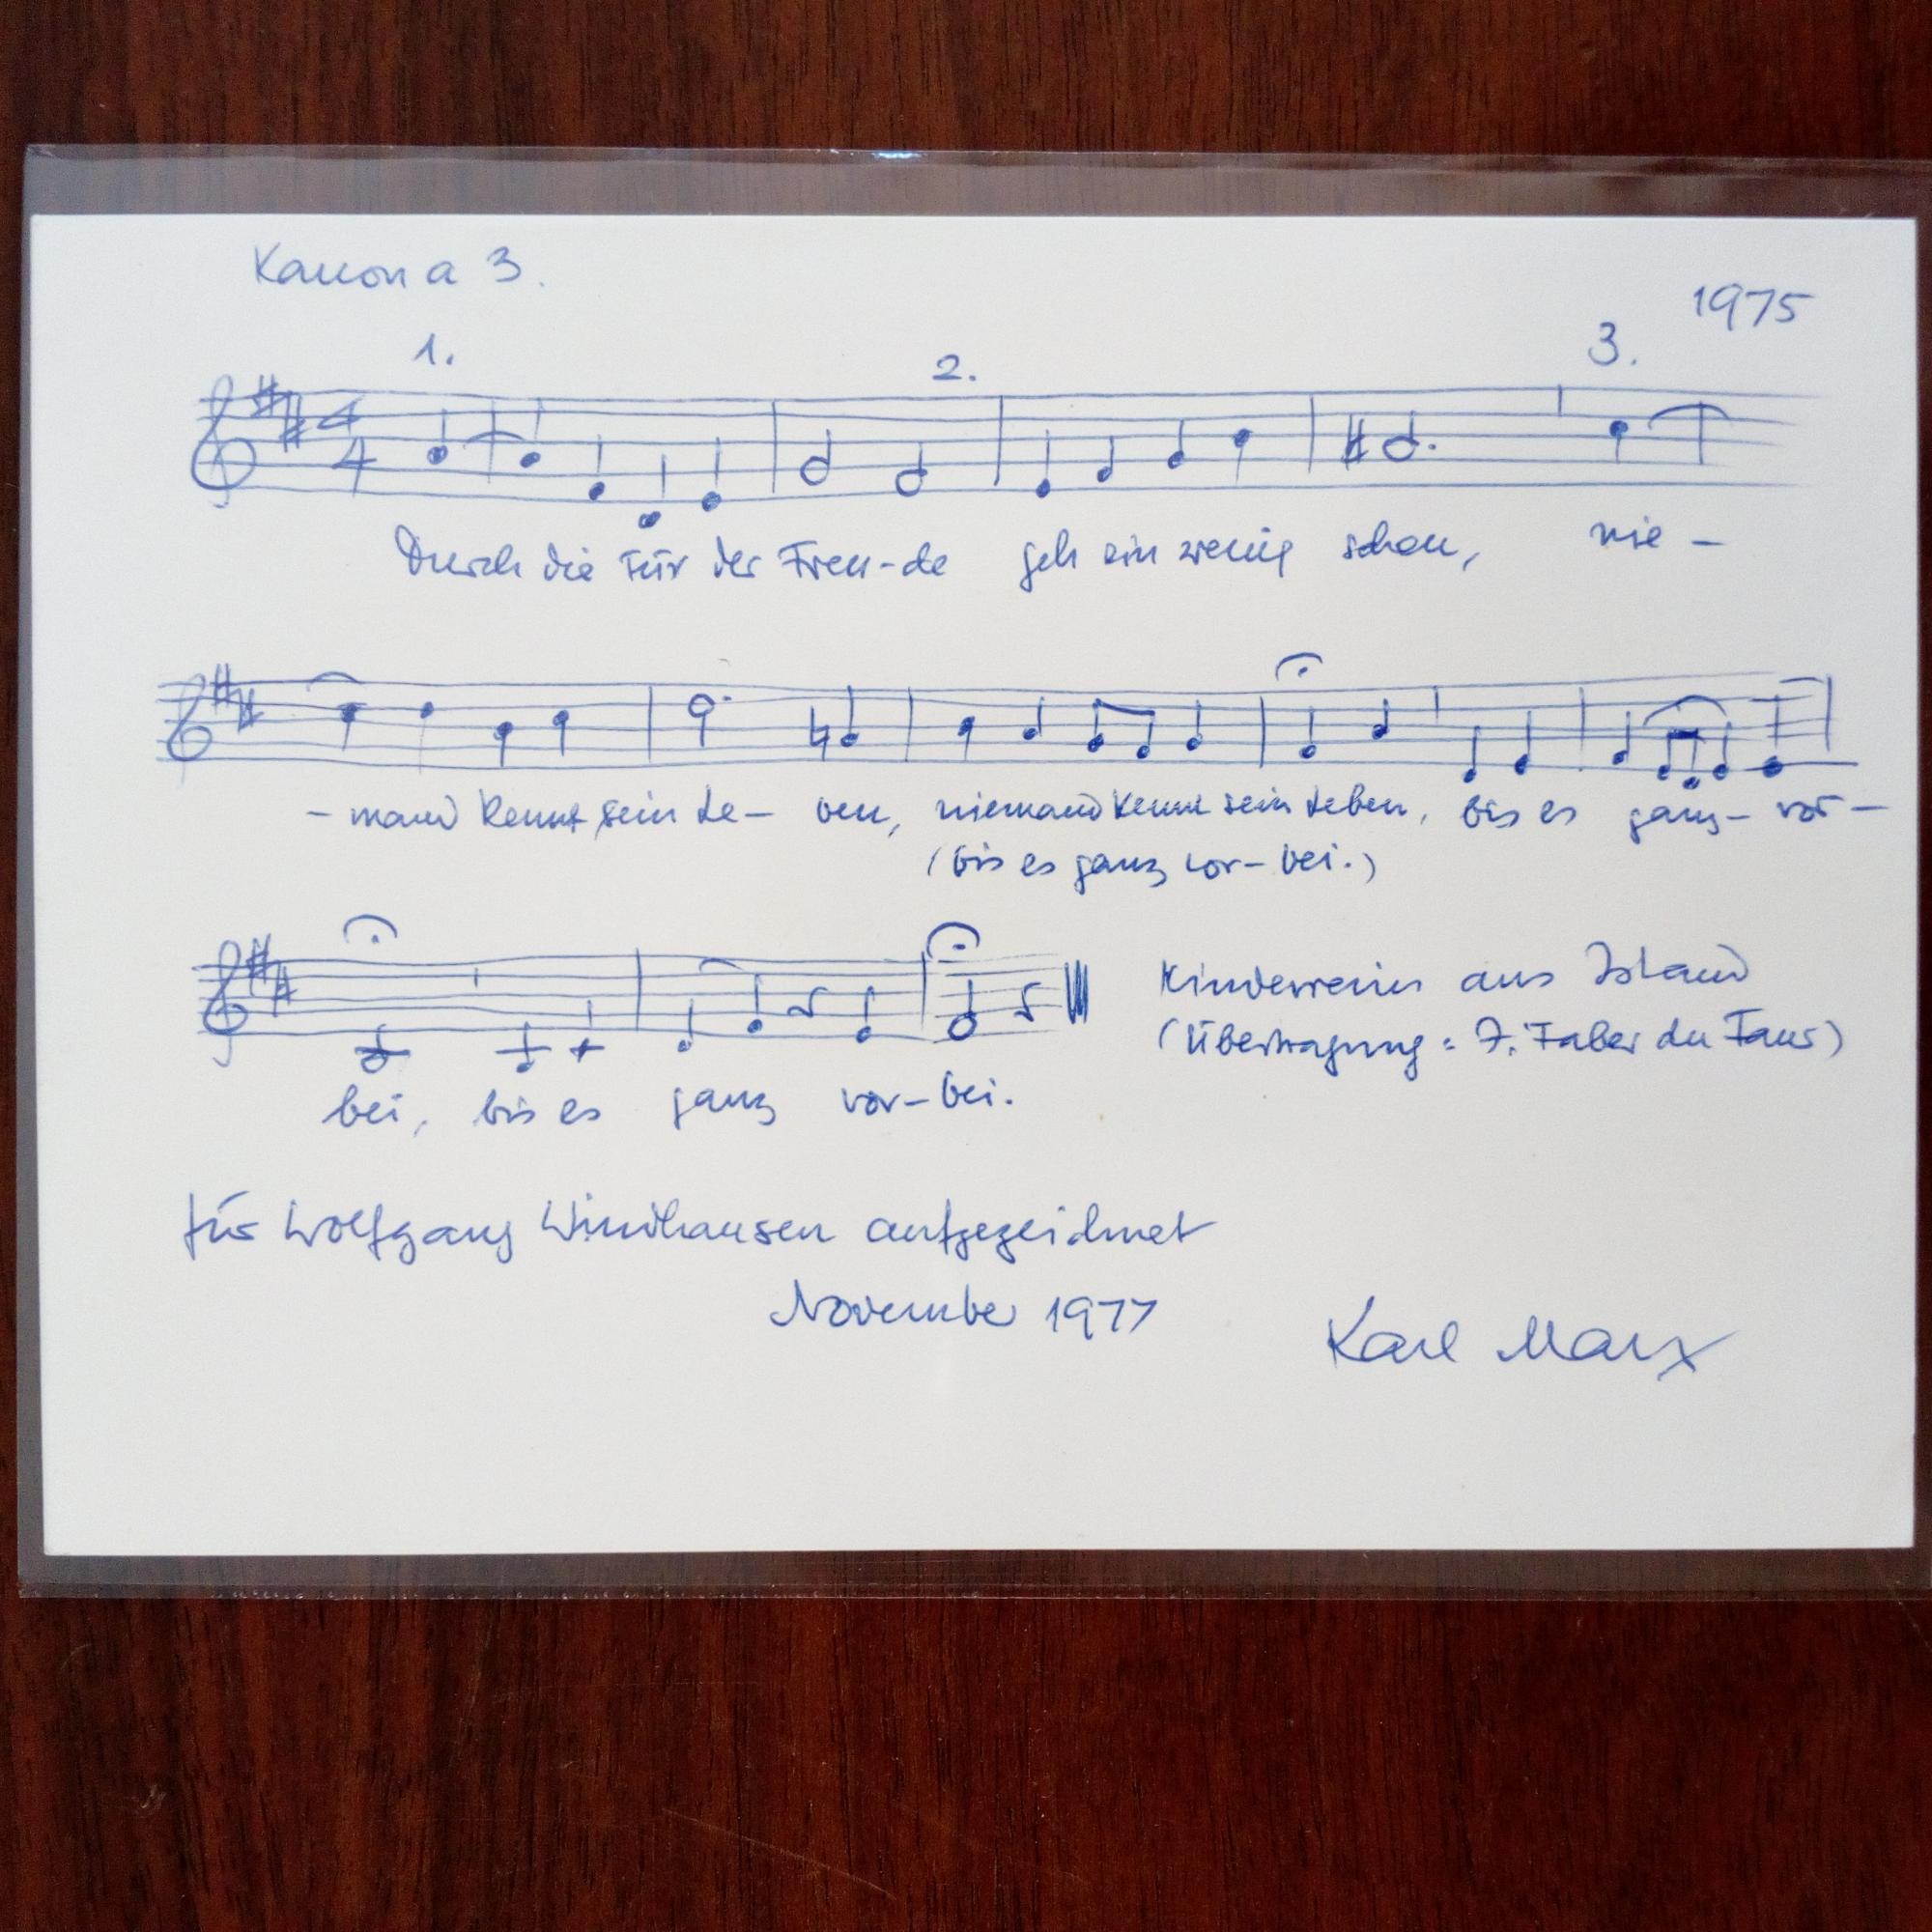 Kanon a 3.
1975
1. 2. 3.
4
4
Durch die Tür der Freu-de geh ein wenig scheu, nie -
- mand kennt sein Le- ben, niemand kennt sein Leben, bis es ganz- vor-
(bis es ganz vor- bei.)
bei, bis es ganz vor-bei.
Kinderreim aus Island
(Übertragung: J. Faber du Faur)
für Wolfgang Windhausen aufgezeichnet
November 1977
Karl Marx